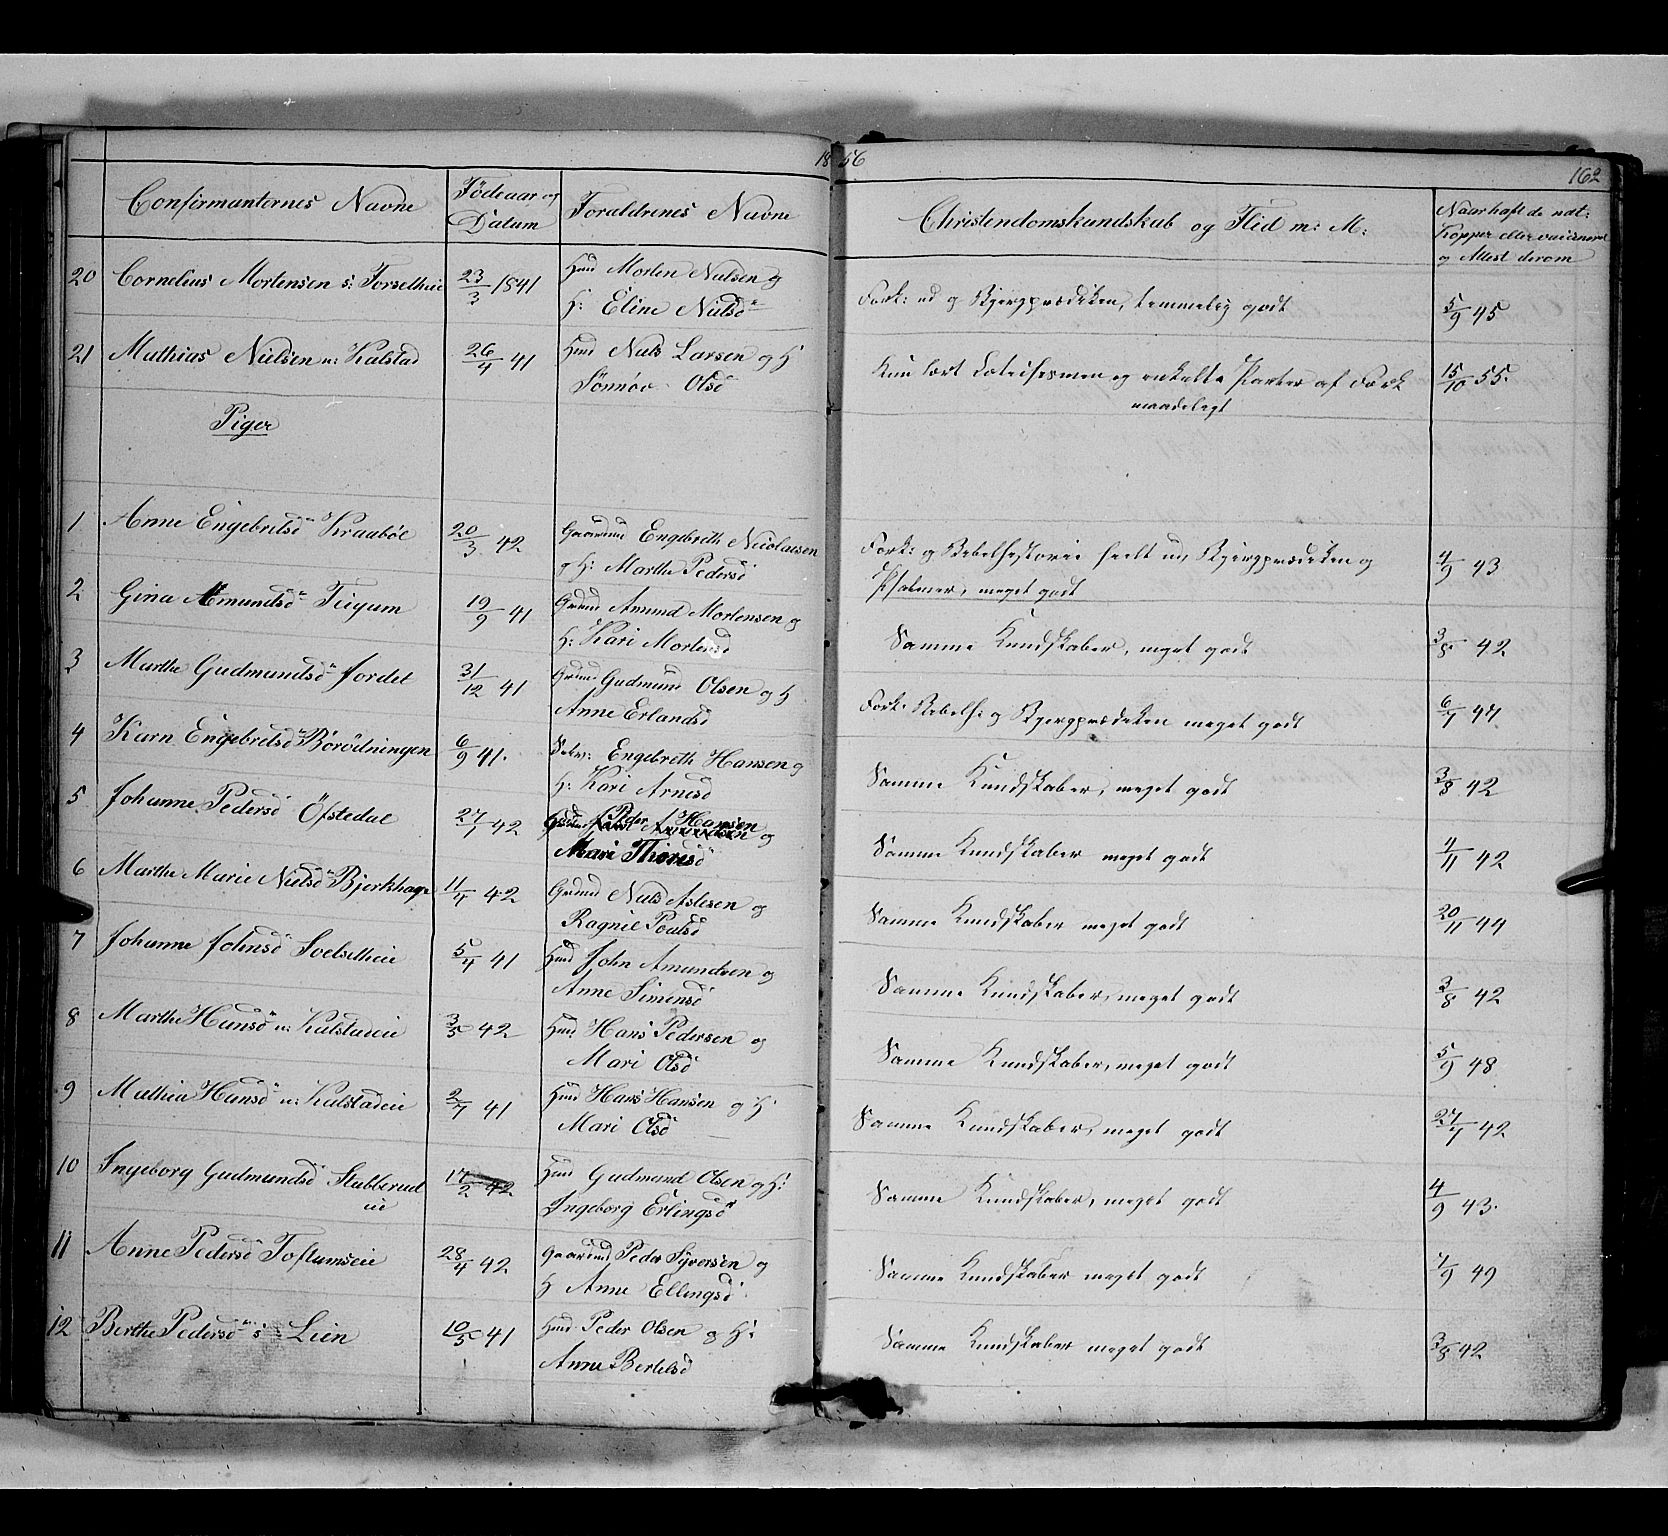 1856
162
Confirmanternes Navne
Fødeaar og Datum
Foraldrenes Navne
Christendomskundskab og Flid m: M:
Naar haft de nat: Kopper eller vaccineret og Attest derom
20 Cornelius Mortensen s: Forsetheie 23/3 1841 Huusd Morten Nielsen og
H: Eline Nielsd
Fork: ud og Bjergprædiken, temmelig godt 5/9 45
21 Mathias Nielsen n: Kalstad 26/4 41 Huusd Niels Larsen og H
Sønnøv Olsd
Kun lært Catechismen og enkelte Parter af Fork 15/10 55.
maadeligt
Piger
1 Anne Engebretsd Kraabøl 20/3 42 Gaardmd Engebreth Nicolaisen
og H: Marthe Pedersd
Fork: og Bibelhistorie heelt ud, Bjergprædiken og 4/9 43
Psalmer, meget godt
2 Gina Amundsd Tiigum 19/9 41 Grdmd Amund Mortensen og
H: Kari Mortensd
Samme Kundskaber, meget godt 3/8 42
3 Marthe Gudmundsd Jordet 31/12 41 Grdmd Gudmund Olsen og H
Anne Erlandsd
Fork: Bibelh: og Bjergprædiken meget godt 6/7 47
4 Karn Engebretsd Börödningen 6/9 41. Selv: Engebreth Hansen og
H: Kari Arnesd
Samme Kundskaber, meget godt 3/8 42
5 Johanne Pedersd Öfstedal 27/1 42 Peder Hansen og
Mari Thoresd
Samme Kundskaber meget godt 4/11 42
6 Marthe Marie Nielsd Bjerkhage 11/4 42 Grdmd Niels Aslesen og
Ragnil Poulsd
Samme Kundskaber meget godt 20/11 44
7 Johanne Johnsd Soelsetheie 5/4 41 Huusd John Amundsen og
Anne Simensd
Samme Kundskaber, meget godt 3/8 42
8 Marthe Hansd n: Kalstadeie 3/5 42 Huusd: Hans Pedersen og
Mari Olsd
Samme Kundskaber, meget godt 5/9 48
9 Mathia Hansd n: Kalstadeie 2/7 41 Huusd Hans Hansen og H
Mari Olsd
Samme Kundskaber, meget godt 27/7 42
10 Ingeborg Gudmundsd Stubberud 17/2 42 Huusd Gudmund Olsen og H:
eie
Ingeborg Erlingsd
Samme Kundskaber, meget godt 4/9 43.
11 Anne Pedersd Toftumseie 28/4 42 Gaardmd Peder Syversen og
H Anne Ellingsd
Samme Kundskaber meget godt 7/9 49
12 Berthe Pedersd s: Lien 10/5 41 Huusd Peder Olsen og H:
Anne Bertelsd
Samme Kundskaber meget godt 3/8 42